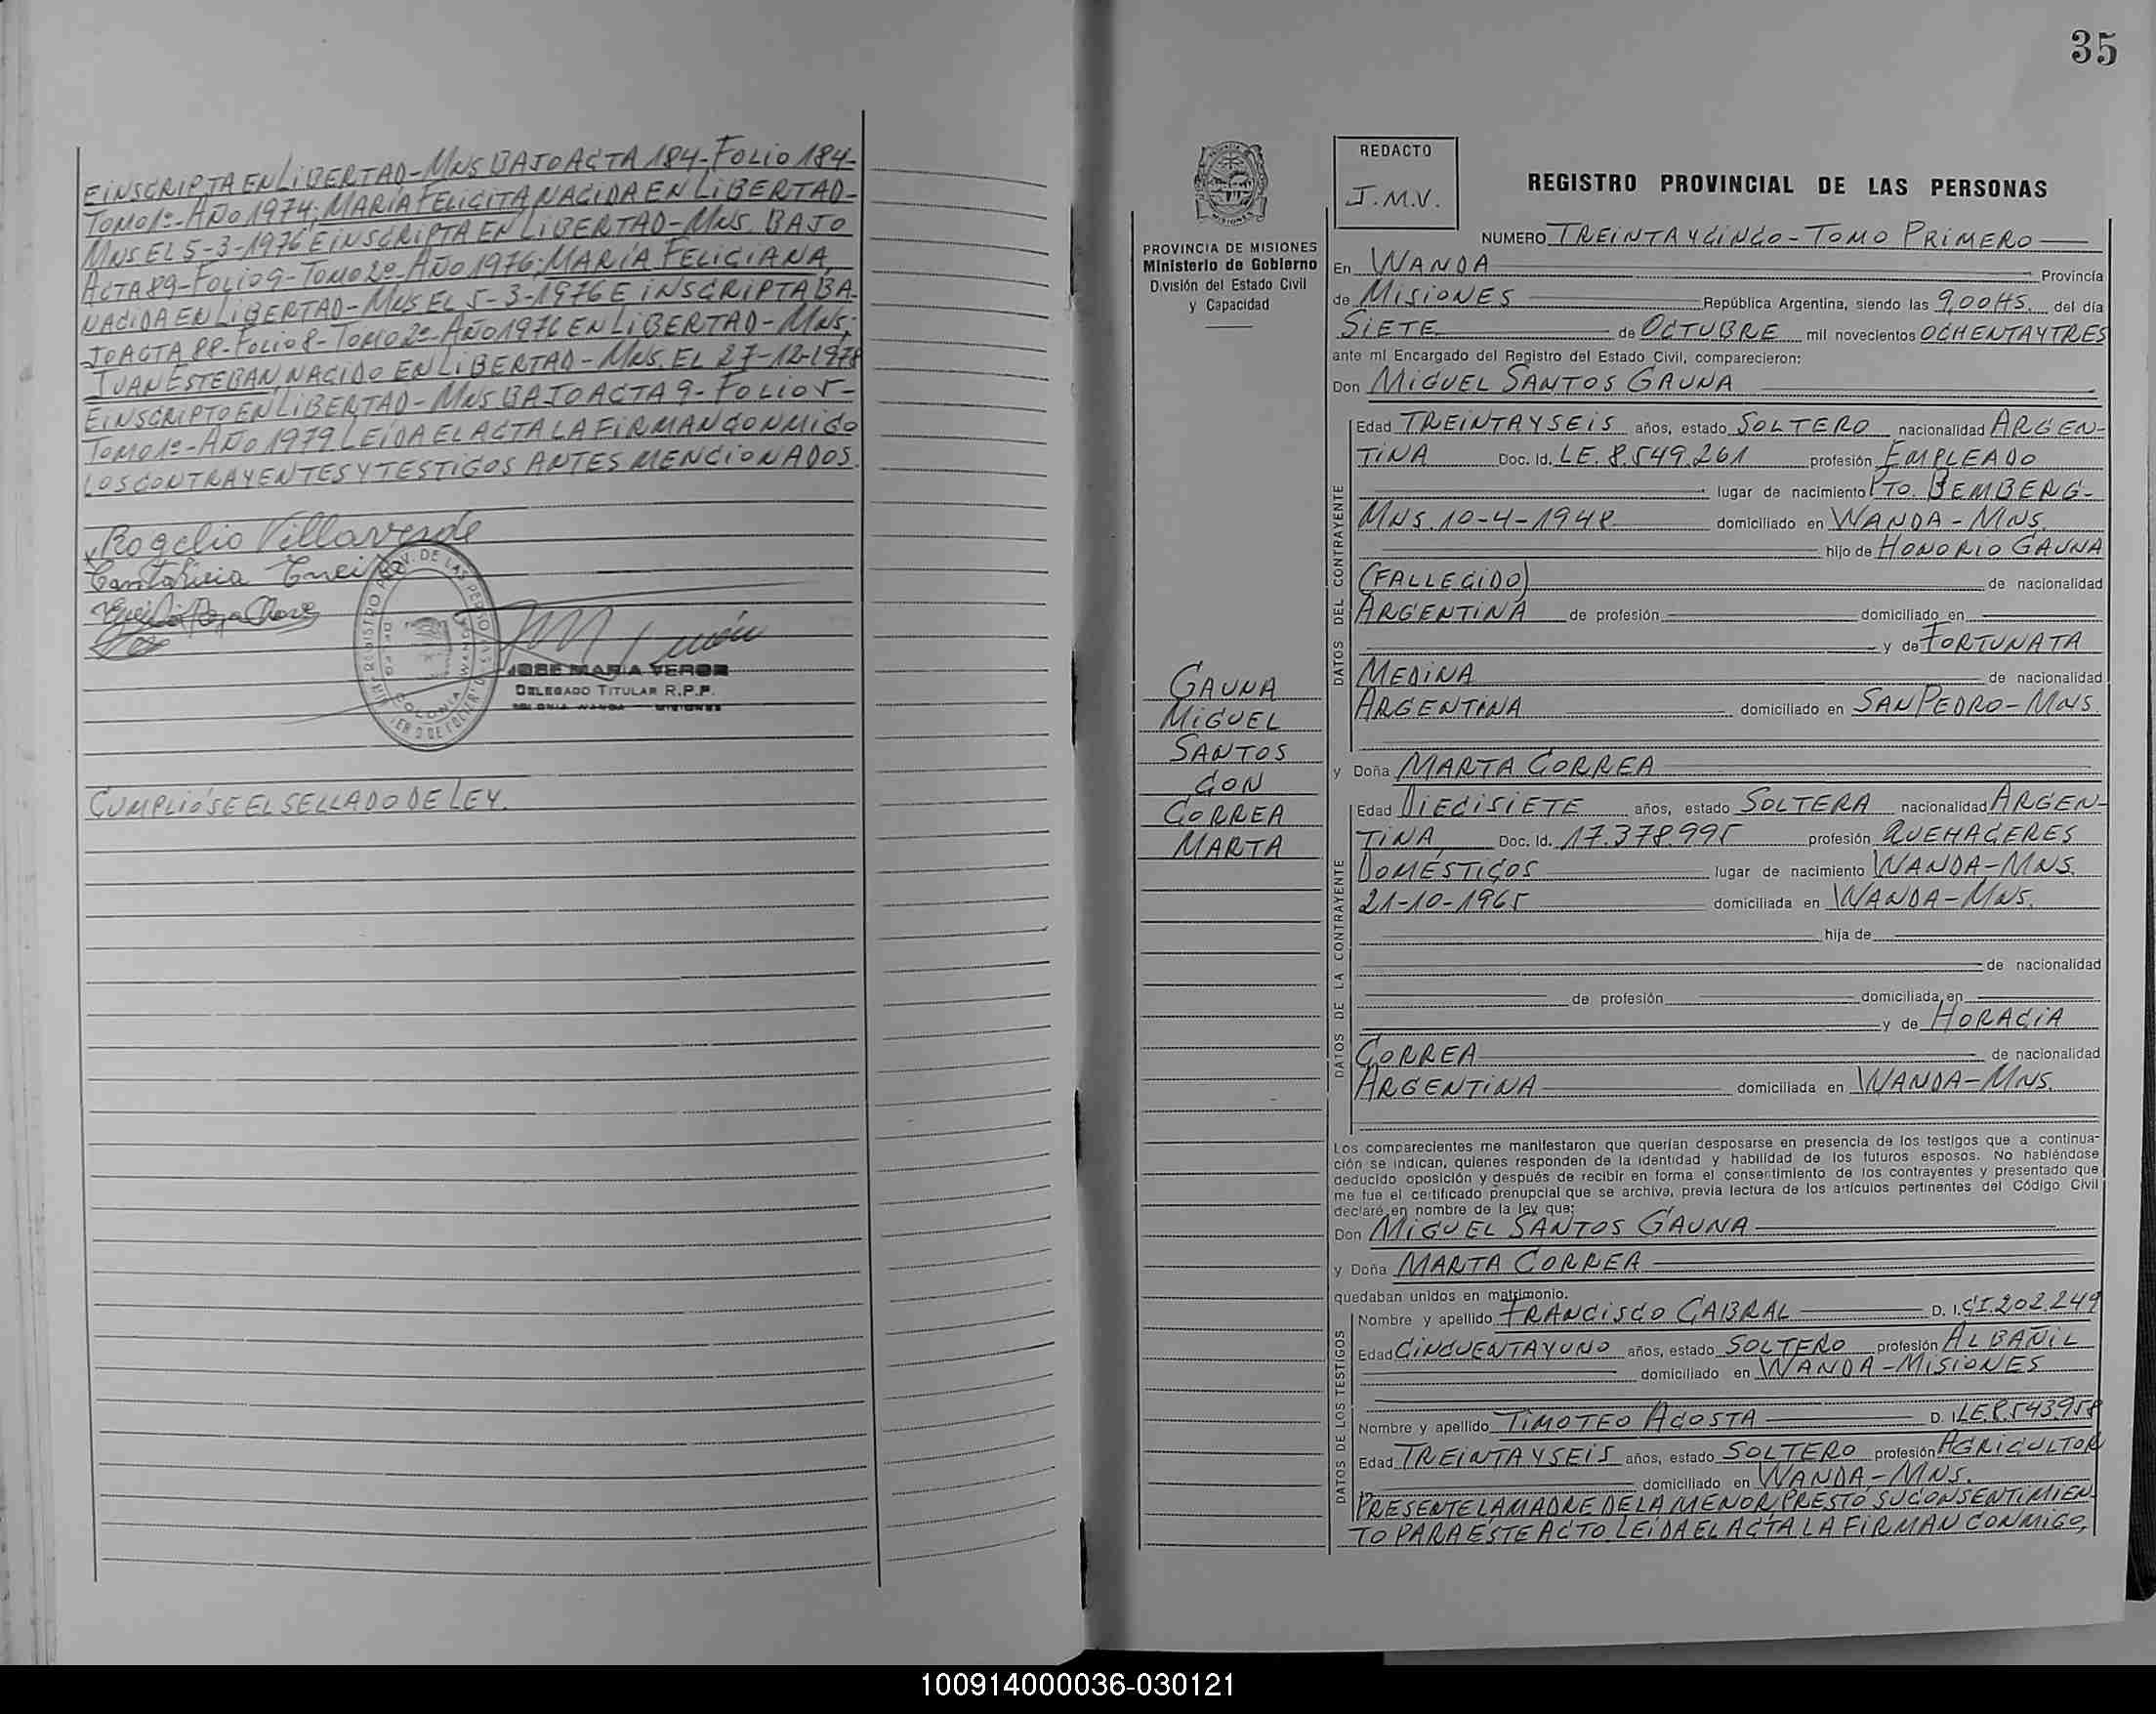 EINSCRIPTA EN LIBERTAD-MNS BAJO ACTA 184-FOLIO 184-
TOMO 1º-AÑO 1974; MARÍA FELICITA NACIDA EN LIBERTAD-
MNS EL 5-3-1976 E INSCRIPTA EN LIBERTAD-MNS. BAJO
ACTA 89-FOLIO 9-TOMO 2º-AÑO 1976; MARÍA FELICIANA
NACIDA EN LIBERTAD-MNS EL 5-3-1976 E INSCRIPTA BA-
JO ACTA 88-FOLIO 8-TOMO 2º-AÑO 1976 EN LIBERTAD-MNS;
JUAN ESTEBAN, NACIDO EN LIBERTAD-MNS. EL 27-12-1978
E INSCRIPTO EN LIBERTAD-MNS BAJO ACTA 9-FOLIO 5-
TOMO 1º-AÑO 1979 LEÍDA EL ACTA LA FIRMAN CONMIGO
LOS CONTRAYENTES Y TESTIGOS ANTES MENCIONADOS.
Rogelio Villaverde
JOSE MARIA VERON
DELEGADO TITULAR R.P.P.
COLONIA WANDA - MISIONES
CUMPLIÓSE EL SELLADO DE LEY.
35
PROVINCIA DE MISIONES
Ministerio de Gobierno
División del Estado Civil
y Capacidad
GAUNA
MIGUEL
SANTOS
CON
CORREA
MARTA
REDACTO
J.M.V.
REGISTRO PROVINCIAL DE LAS PERSONAS
NUMERO TREINTA Y CINCO-TOMO PRIMERO
En WANDA Provincia
de MISIONES República Argentina, siendo las 9,00 HS. del día
SIETE de OCTUBRE mil novecientos OCHENTA Y TRES
ante mí Encargado del Registro del Estado Civil, comparecieron:
Don MIGUEL SANTOS GAUNA
DATOS DEL CONTRAYENTE
Edad TREINTA Y SEIS años, estado SOLTERO nacionalidad ARGEN-
TINA Doc. Id. LE. 8.549.261 profesión EMPLEADO
lugar de nacimiento PTO. BEMBERG-
MNS. 10-4-1948 domiciliado en WANDA-MNS.
hijo de HONORIO GAUNA
(FALLECIDO) de nacionalidad
ARGENTINA de profesión domiciliado en
y de FORTUNATA
MEDINA de nacionalidad
ARGENTINA domiciliado en SAN PEDRO-MNS.
y Doña MARTA CORREA
DATOS DE LA CONTRAYENTE
Edad DIECISIETE años, estado SOLTERA nacionalidad ARGEN-
TINA Doc. Id. 17.378.995 profesión QUEHACERES
DOMÉSTICOS lugar de nacimiento WANDA-MNS.
21-10-1965 domiciliada en WANDA-MNS.
hija de
de nacionalidad
de profesión domiciliada en
y de HORACIA
CORREA de nacionalidad
ARGENTINA domiciliada en WANDA-MNS.
Los comparecientes me manifestaron que querían desposarse en presencia de los testigos que a continua-
ción se indican, quienes responden de la identidad y habilidad de los futuros esposos. No habiéndose
deducido oposición y después de recibir en forma el consentimiento de los contrayentes y presentado que
me fue el certificado prenupcial que se archiva, previa lectura de los artículos pertinentes del Código Civil
declaré en nombre de la ley que:
Don MIGUEL SANTOS GAUNA
y Doña MARTA CORREA
quedaban unidos en matrimonio.
DATOS DE LOS TESTIGOS
Nombre y apellido FRANCISCO CABRAL D. I. CI.202.249
Edad CINCUENTA Y UNO años, estado SOLTERO profesión ALBAÑIL
domiciliado en WANDA-MISIONES
Nombre y apellido TIMOTEO ACOSTA D. I. LE.8.543.958
Edad TREINTA Y SEIS años, estado SOLTERO profesión AGRICULTOR
domiciliado en WANDA-MNS.
PRESENTE LA MADRE DE LA MENOR, PRESTÓ SU CONSENTIMIEN
TO PARA ESTE ACTO. LEÍDA EL ACTA LA FIRMAN CONMIGO,
100914000036-030121